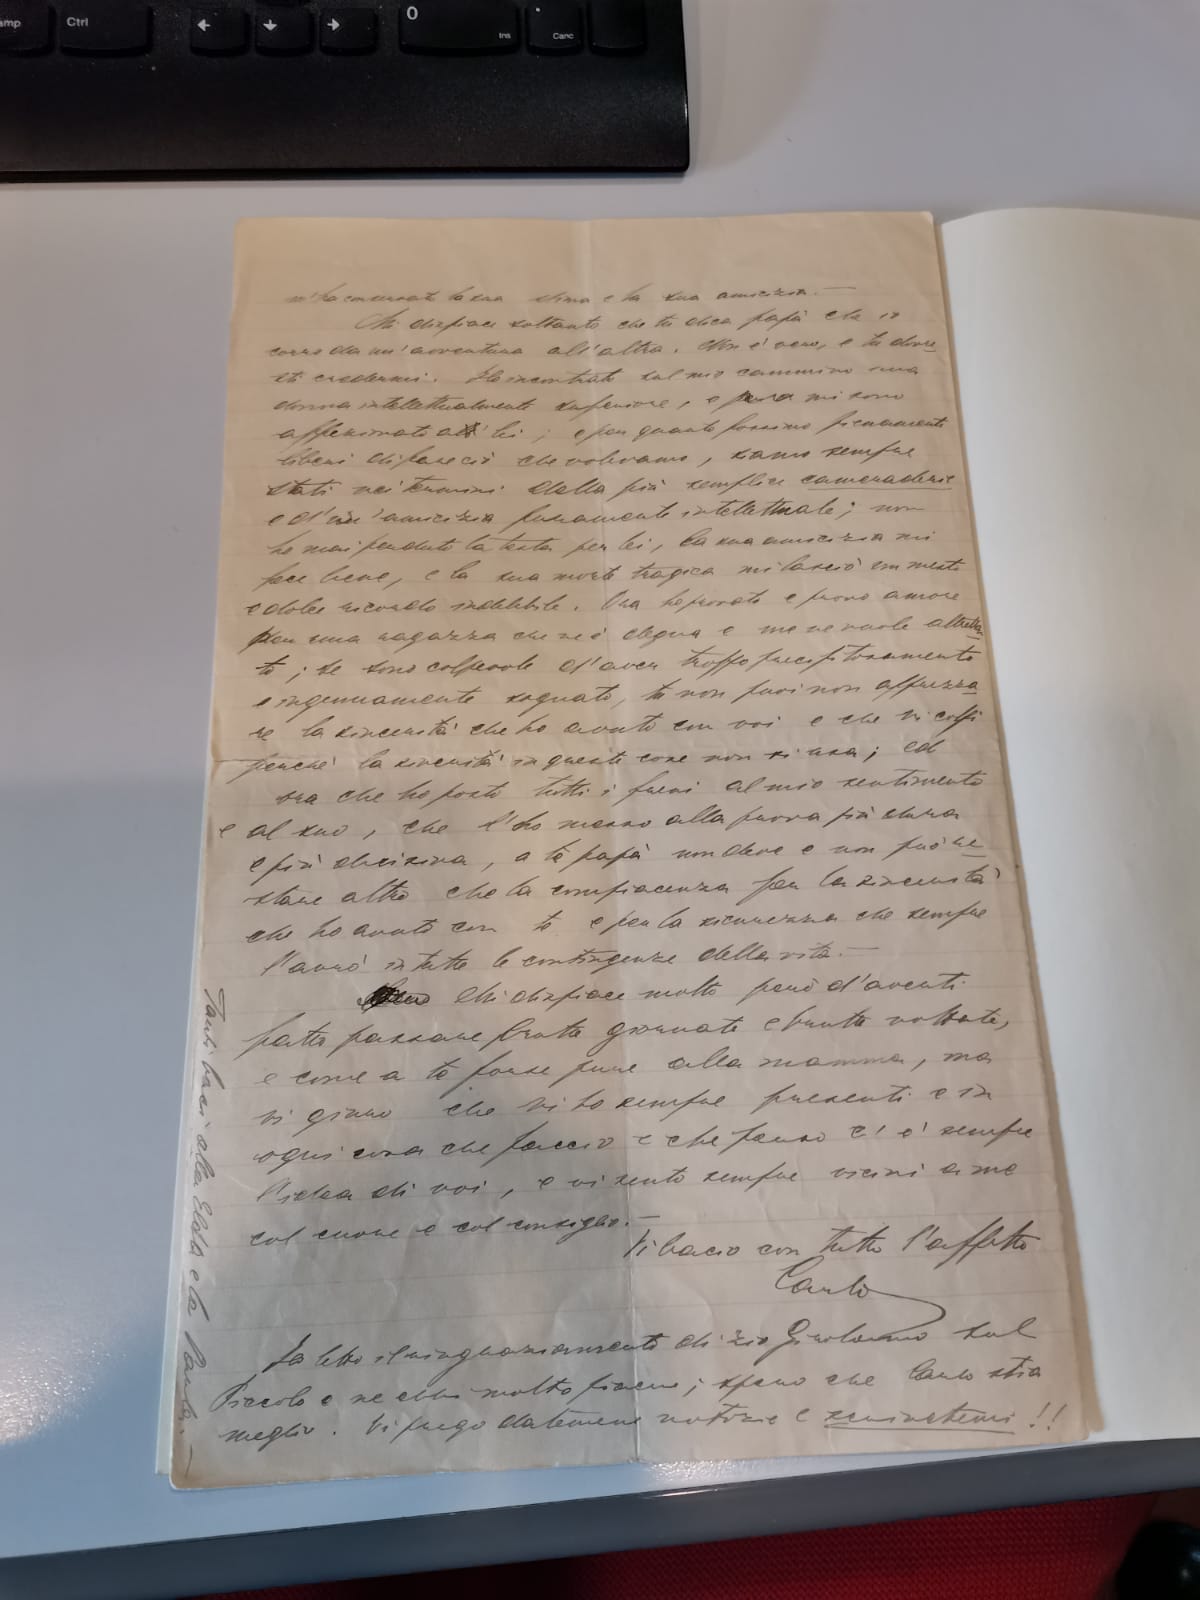 Ctrl
0
Ins
Canc
m'ha conservato la sua stima e la sua amicizia. —
Mi dispiace soltanto che tu dica papà che io
corro da un'avventura all'altra. Non è vero, e tu dovre
sti credermi. Ho incontrato sul mio cammino una
donna intellettualmente superiore, e mi sono
affezionato a lei; e per quanto fossimo pienamente
liberi di fare ciò che volevamo, siamo sempre
stati nei termini della più semplice cameraderie
e d'un'amicizia puramente intellettuale; non
ho mai perduto la testa per lei, la sua amicizia mi
fece bene, e la sua morte tragica mi lasciò un mesto
e dolce ricordo indelebile. Ora ho provato e provo amore
per una ragazza che ne è degna e me ne vuole altrettan
to; se sono colpevole d'aver troppo precipitosamente
e ingenuamente sognato, tu non puoi non apprezza
re la sincerità che ho avuto con voi e che vi colpì
perchè la sincerità in queste cose non si usa; ed
ora che ho posto tutti i freni al mio sentimento
e al suo, che l'ho messo alla prova più dura
e più decisiva, a te papà non deve e non può re
stare altro che la compiacenza per la sincerità
che ho avuto con te e per la sicurezza che sempre
l'avrò in tutte le contingenze della vita. —
Mi dispiace molto però d'averti
fatto passare brutte giornate e brutte nottate,
e come a te forse pure alla mamma, ma
vi giuro che vi ho sempre presenti e in
ogni cosa che faccio e che penso c'è sempre
l'idea di voi, e vi sento sempre vicini a me
col cuore e col consiglio. —
Vi bacio con tutto l'affetto
Carlo
Ho letto il ringraziamento di zio Girolamo sul
Piccolo e ne ebbi molto piacere; spero che Carlo stia
meglio. Vi prego datemene notizie e scrivetemi!!
Tanti baci alla e la Paola. —